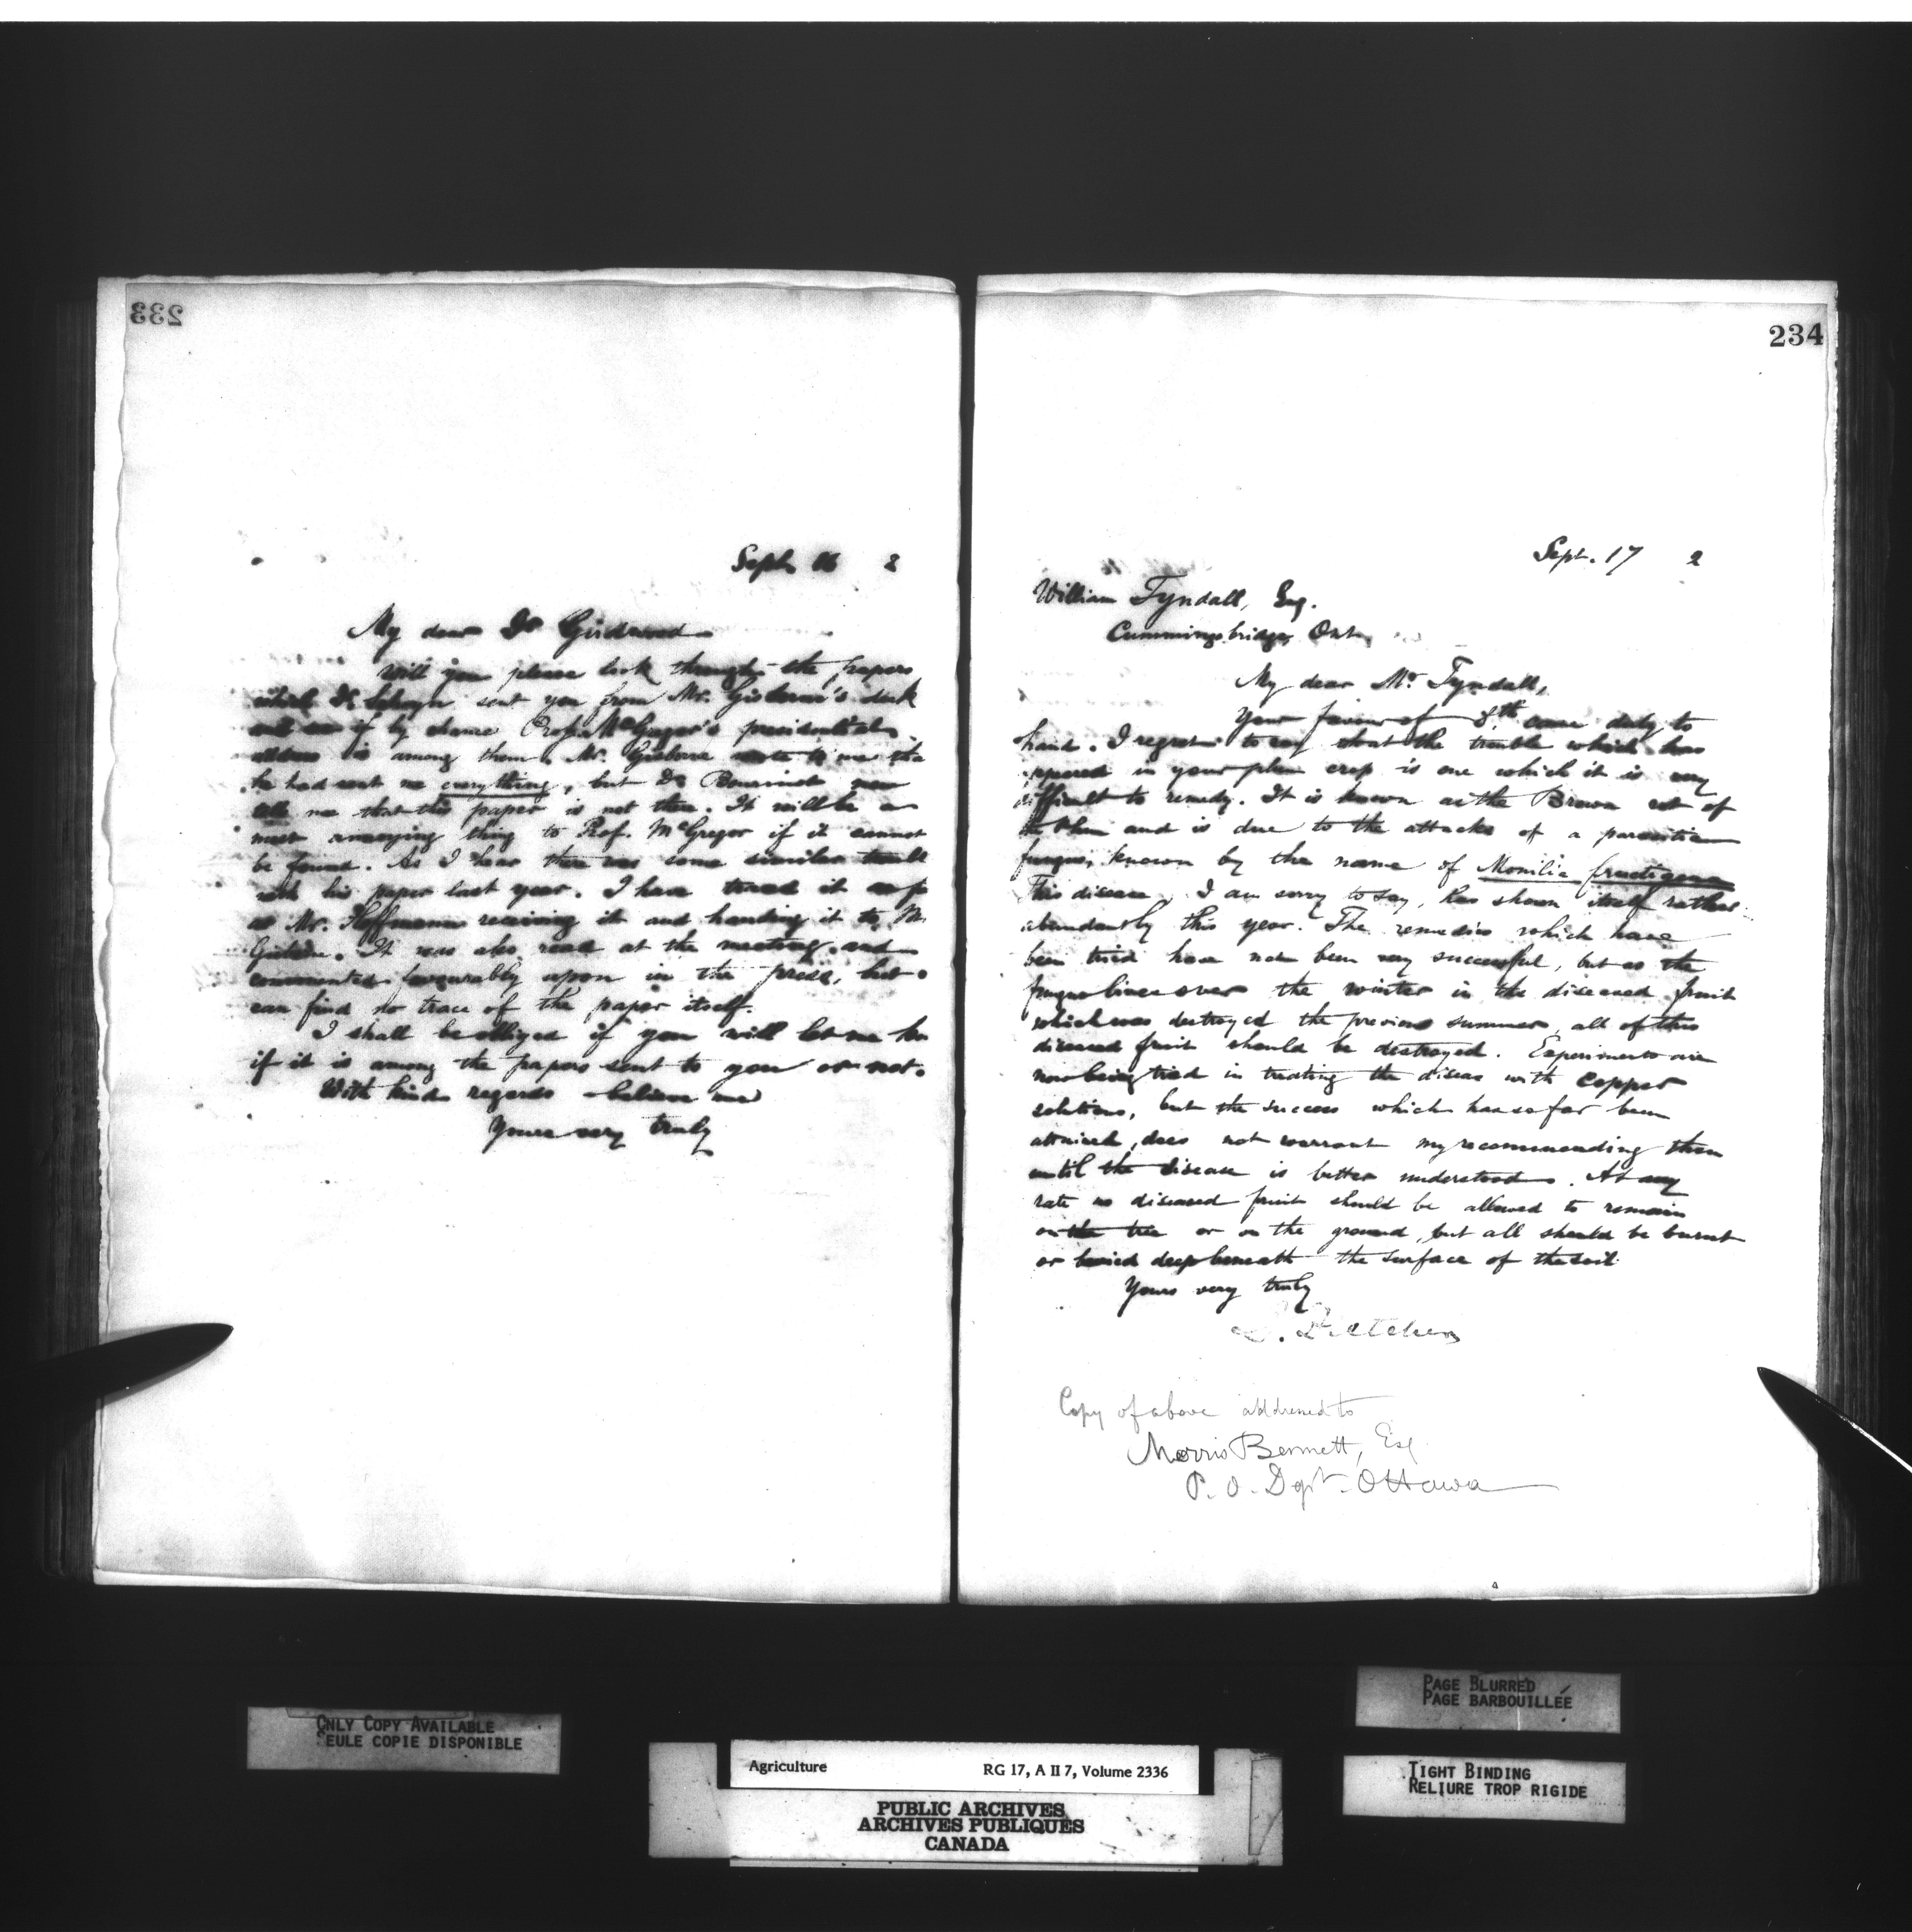 233
Sept. 16 2
My dear Dr Girdwood
Will you please look through the papers
which Dr Selwyn sent you from Mr. Gisborne's desk
and see if by chance Prof. McGregor's presidential
address is among them. Mr. Gisborne wrote to me
he had sent me everything, but Dr Bourinot now
tells me that this paper is not there. It will be a
most annoying thing to Prof. McGregor if it cannot
be found. As I hear there was some similar trouble
with his paper last year. I have traced it as far
as Mr. Hoffmann receiving it and handing it to Mr.
Gisborne. It was also read at the meeting and
commented favourably upon in the press, but
can find no trace of the paper itself.
I shall be obliged if you will let me know
if it is among the papers sent to you or not.
With kind regards believe me
Yours very truly
234
Sept. 17 2
William Tyndall, Esq.
Cummings bridge, Ont.
My dear Mr. Tyndall,
Your favour of 8th came duly to
hand. I regret to say that the trouble which has
appeared in your plum crop is one which it is very
difficult to remedy. It is known as the Brown rot of
the Plum and is due to the attacks of a parasitic
fungus, known by the name of Monilia fructigena
This disease, I am sorry to say, has shown itself rather
abundantly this year. The remedies which have
been tried have not been very successful, but as the
fungus lives over the winter in the diseased fruit
which was destroyed the previous summer, all of this
diseased fruit should be destroyed. Experiments are
now being tried in treating the disease with copper
solutions, but the success which has so far been
attained, does not warrant my recommending them
until the disease is better understood. At any
rate no diseased fruit should be allowed to remain
on the tree or on the ground, but all should be burnt
or buried deep beneath the surface of the soil
Yours very truly
J. Fletcher
Copy of above addressed to
Morris Bennett, Esq
P. O. Dept. Ottawa
ONLY COPY AVAILABLE
SEULE COPIE DISPONIBLE
PAGE BLURRED
PAGE BARBOUILLÉE
TIGHT BINDING
RELIURE TROP RIGIDE
Agriculture RG 17, A II 7, Volume 2336
PUBLIC ARCHIVES
ARCHIVES PUBLIQUES
CANADA